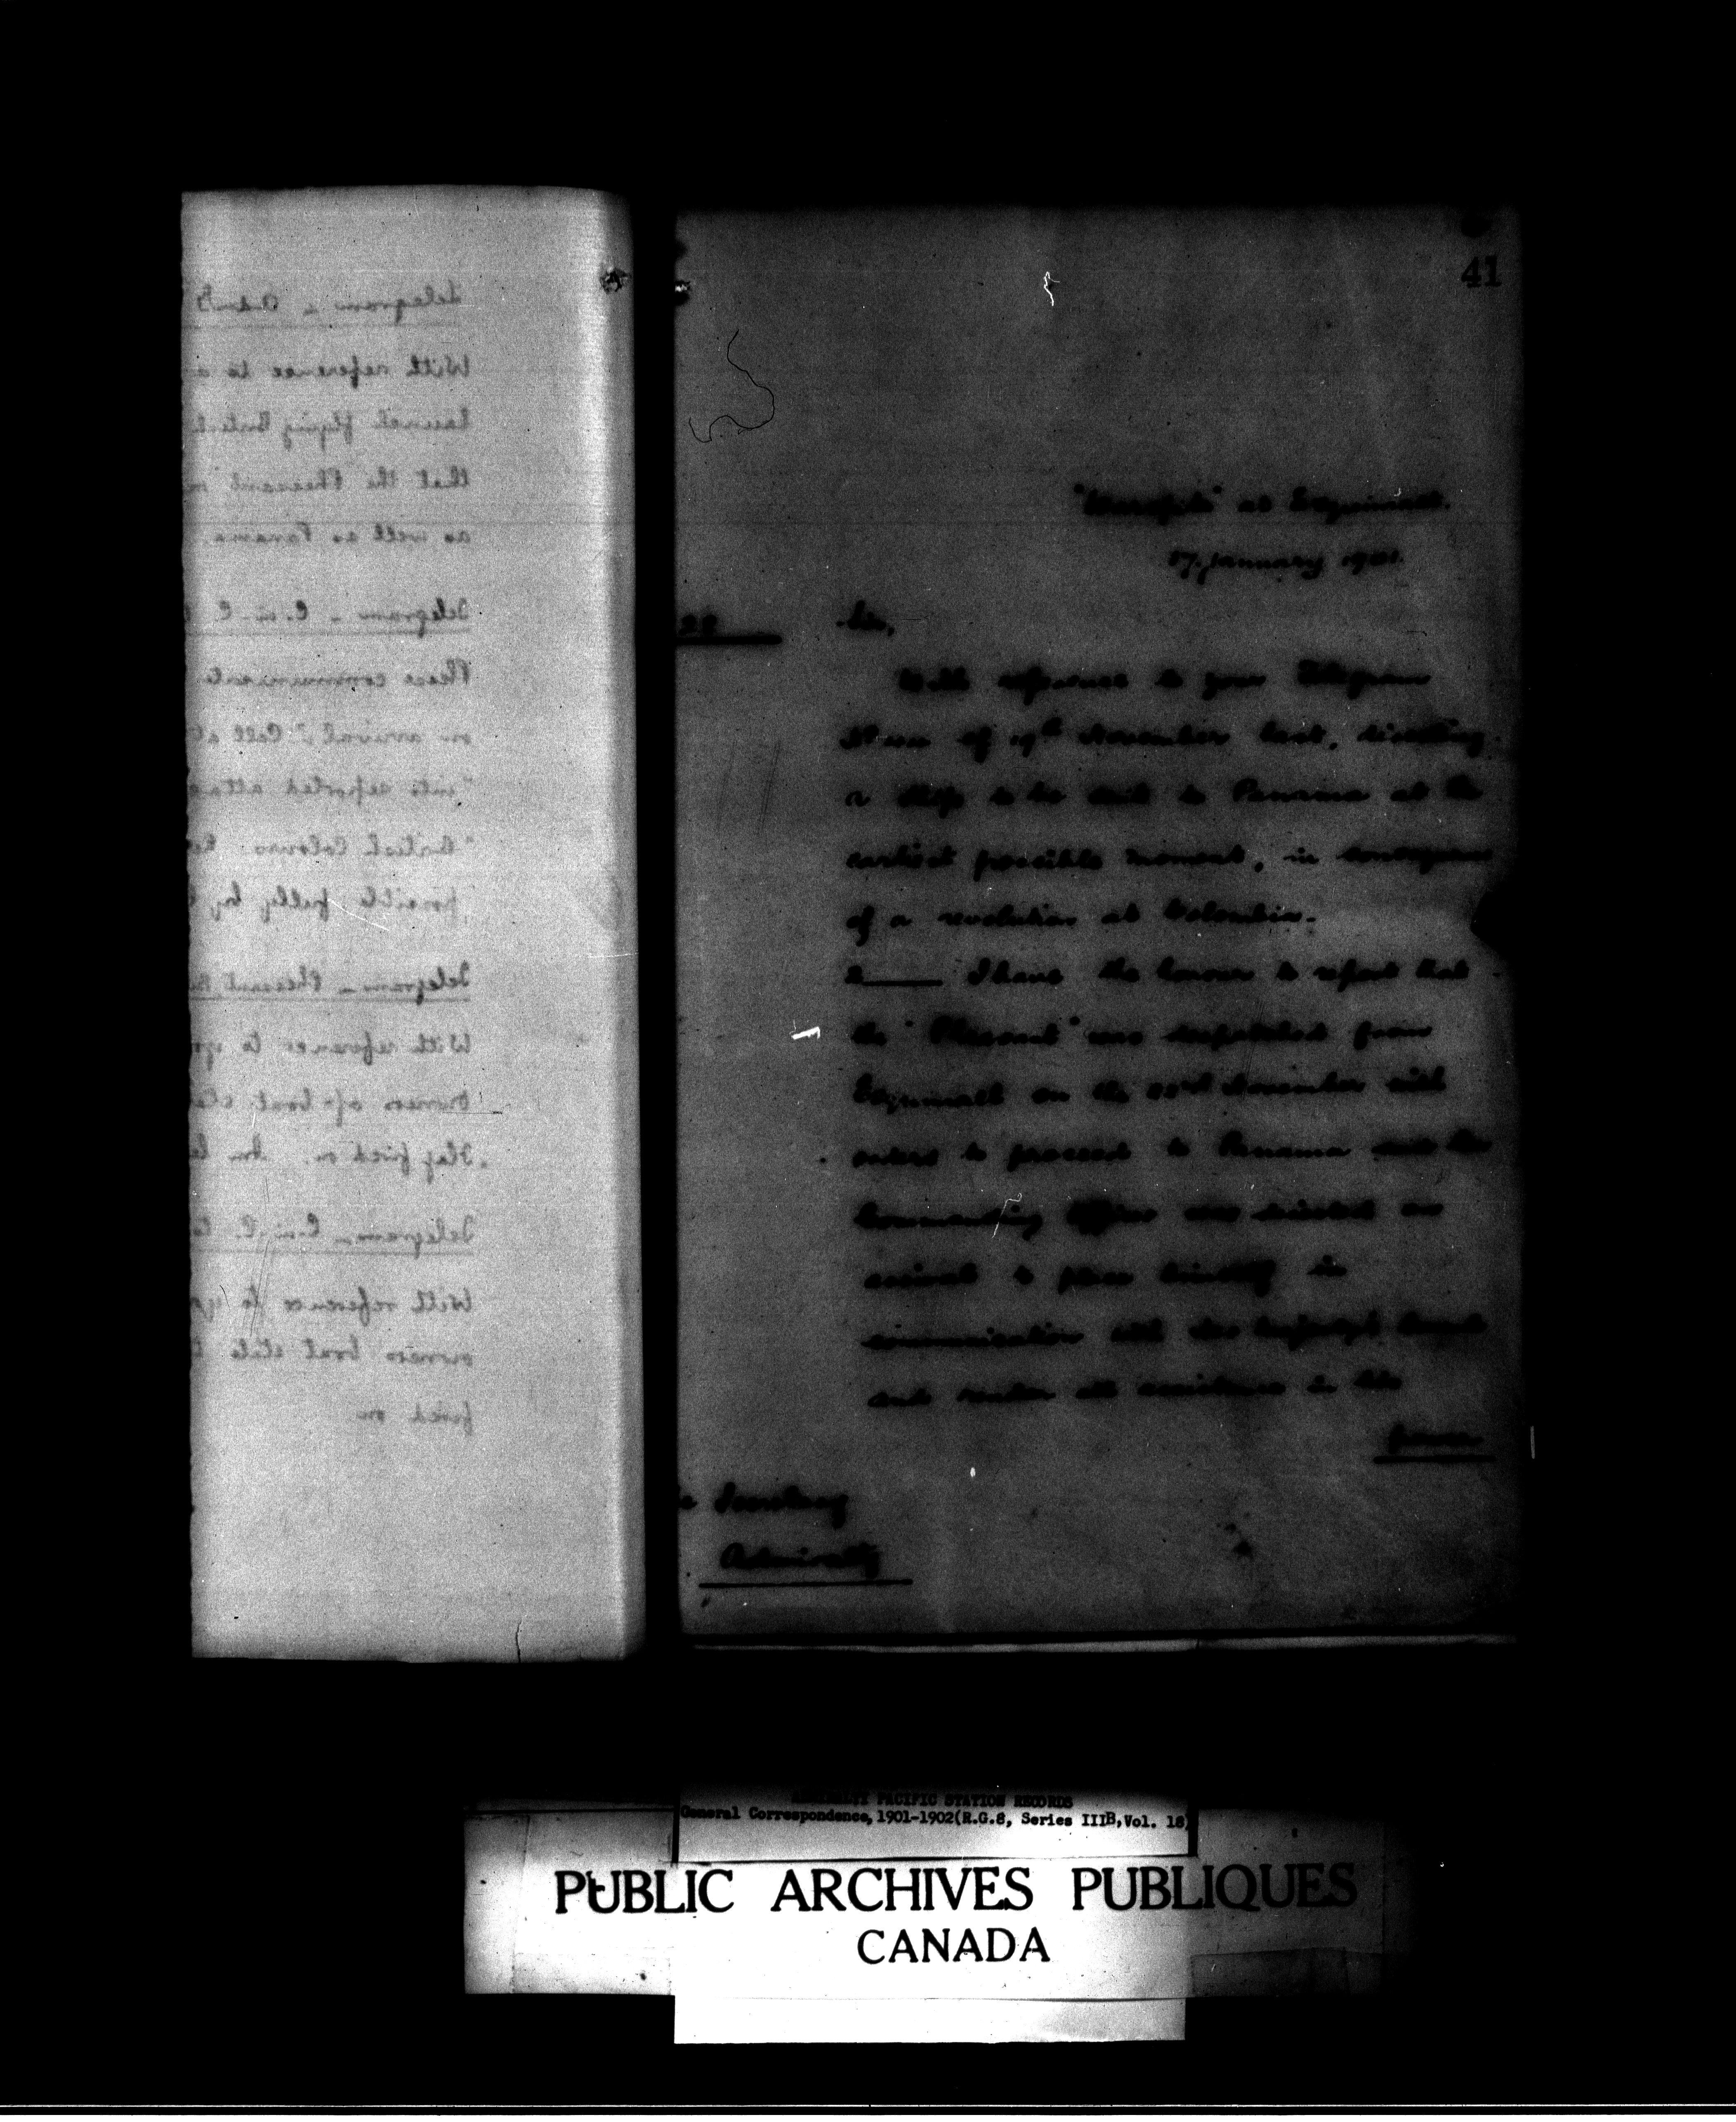 Telegram - Adm
With reference to a
launch flying British
that the Pheasant
as well as Panama
Telegram - C. in C.
Please communicate
on arrival "Call at
"into reported attac
"British Colours
possible fully by
Telegram - Pheasant
With reference to
owners of boat state
flag fired on.
Telegram - C. in C. to
With reference to
owners boat state
fired on
41
"Warspite" at Esquimalt.
17. January 1901.
22
Sir,
With reference to your Telegram
of 19th November last, directing
a ship to be sent to Panama at the
earliest possible moment, in consequence
of a revolution at Colombia.
2 I have the honour to report that
the "Pheasant" was despatched from
Esquimalt on the 23rd November with
orders to proceed to Panama and the
Commanding Officer was directed on
arrival to place himself in
communication with Her Majesty's Consul
and render all assistance in his
power
Secretary
Admiralty
ADMIRALTY PACIFIC STATION RECORDS
General Correspondence, 1901-1902(R.G.8, Series IIIB, Vol. 18)
PUBLIC ARCHIVES PUBLIQUES
CANADA